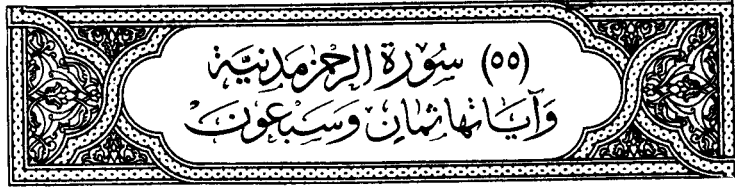 (٥٥) سُوْرَةُ الرَّحْمٰنِ مَدَنِيَّةٌ
وَآيَاتُهَا ثَمَانٌ وَسَبْعُونَ